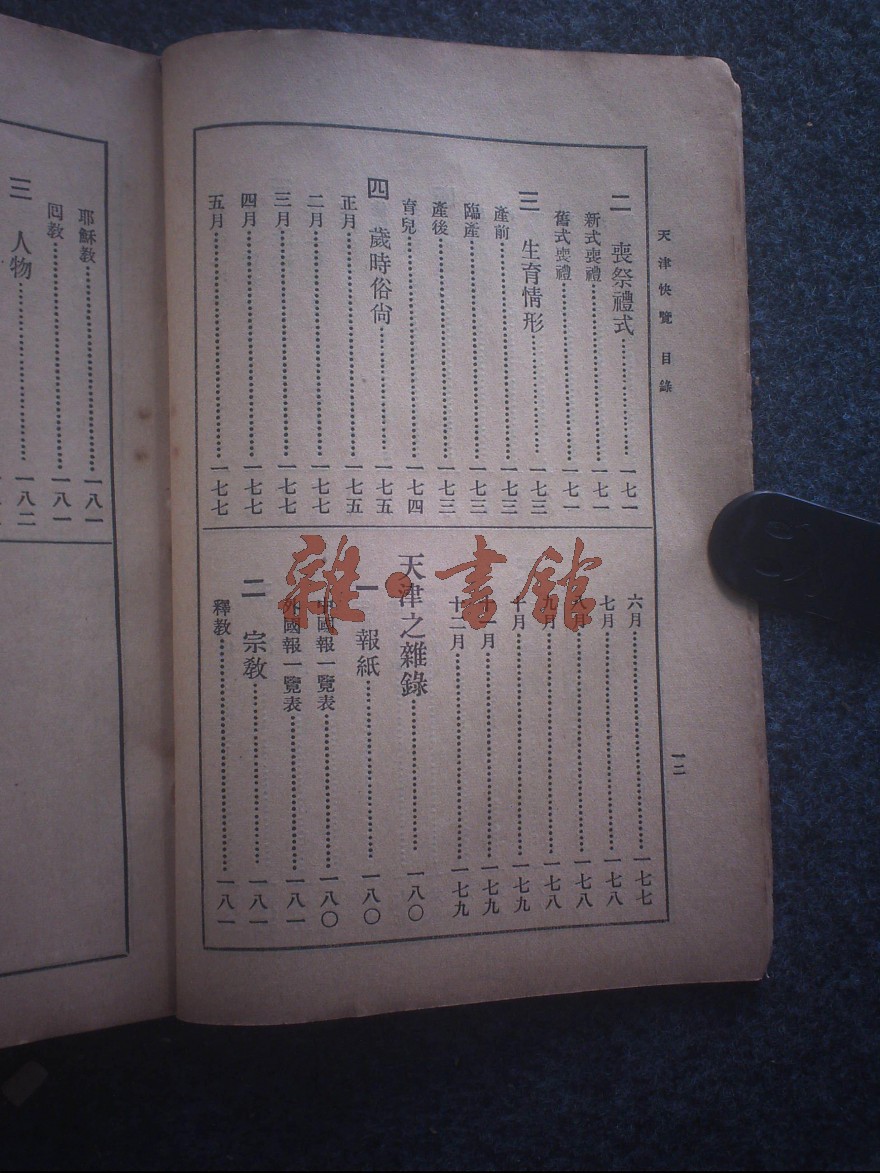 天津快覽 目錄
一二
二 喪祭禮式……一七一
新式喪禮……一七一
舊式喪禮……一七一
三 生育情形……一七三
產前……一七三
臨產……一七三
產後……一七三
育兒……一七四
四 歲時俗尙……一七五
正月……一七五
二月……一七七
三月……一七七
四月……一七七
五月……一七七
六月……一七七
七月……一七八
八月……一七八
九月……一七八
十月……一七九
十一月……一七九
十二月……一七九
天津之雜錄……一八〇
一 報紙……一八〇
中國報一覽表……一八〇
外國報一覽表……一八一
二 宗教……一八一
釋教……一八一
耶穌教……一八一
回教……一八一
三 人物……一八二
雜·書館